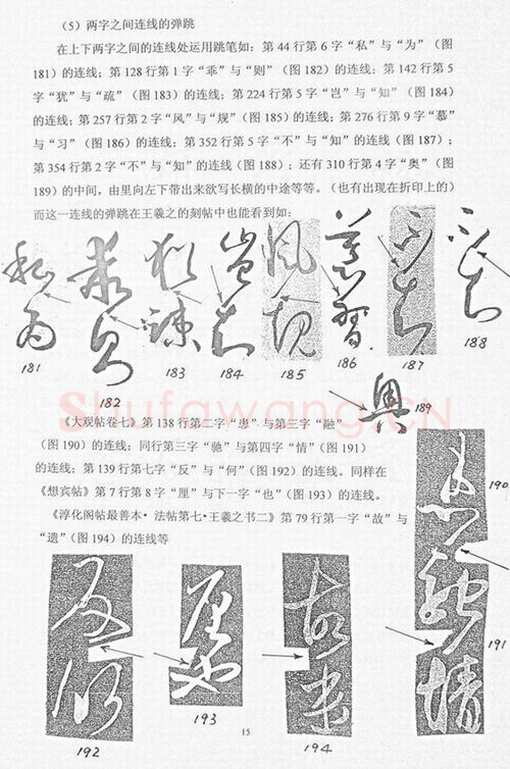 （5）两字之间连线的弹跳
在上下两字之间的连线处运用跳笔如：第 44 行第 6 字“私”与“为”（图
181）的连线；第 128 行第 1 字“乖”与“则”（图 182）的连线；第 142 行第 5
字“犹”与“疏”（图 183）的连线；第 224 行第 5 字“岂”与“知”（图 184）
的连线；第 257 行第 2 字“风”与“规”（图 185）的连线；第 276 行第 9 字“慕”
与“习”（图 186）的连线；第 352 行第 5 字“不”与“知”的连线（图 187）；
第 354 行第 2 字“不”与“知”的连线（图 188）；还有 310 行第 4 字“奥”（图
189）的中间，由里向左下带出来欲写长横的中途等等。（也有出现在折印上的）
而这一连线的弹跳在王羲之的刻帖中也能看到如：
私为 乖则 犹疏 岂知 风规 慕习 不知 不知
181 182 183 184 185 186 187 188
奥 189
Shufawang.cn
《大观帖卷七》第 138 行第二字“患”与第三字“融”
（图 190）的连线；同行第三字“驰”与第四字“情”（图 191）
的连线；第 139 行第七字“反”与“何”（图 192）的连线。同样在
《想宾帖》第 7 行第 8 字“厘”与下一字“也”（图 193）的连线。
《淳化阁帖最善本·法帖第七·王羲之书二》第 79 行第一字“故”与
“遗”（图 194）的连线等
190
191
192 193 194
15